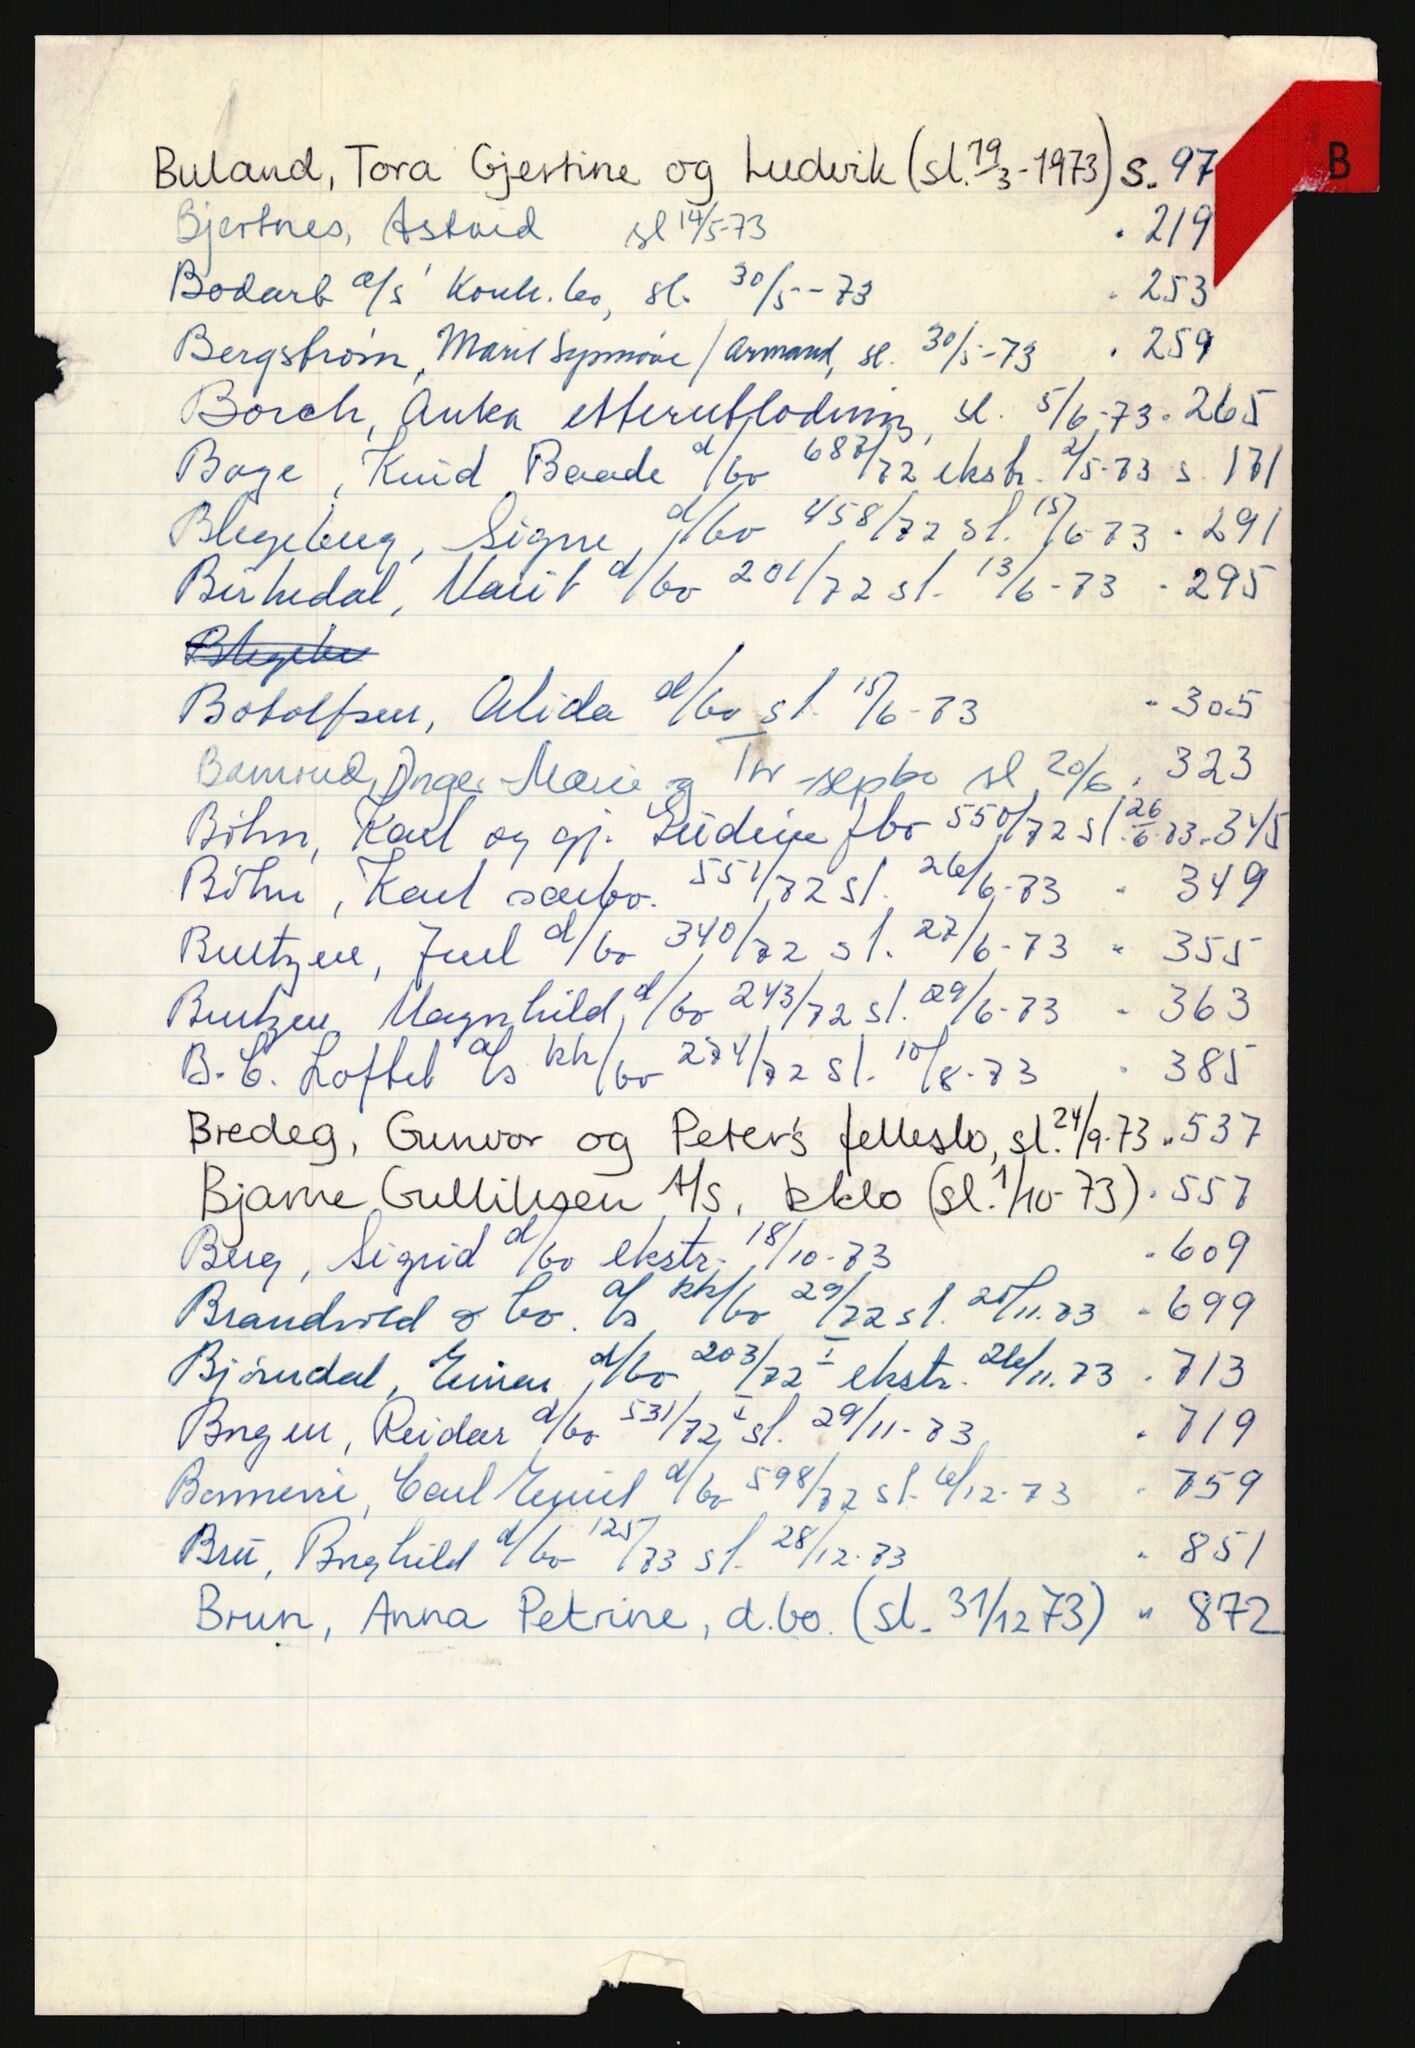 B
Buland, Tora Gjertine og Ludvik (sl. 19/3-1973) s. 97
Bjertnes, Astrid sl 14/5-73 " 219
Bodarb a/s' konk.bo, sl. 30/5-73 " 253
Bergstrøm, Marit Synnøve / Armand, sl. 30/5-73 " 259
Borch, Anka etterutlodning, sl. 5/6-73 " 265
Boge, Knud Baade d/bo 687/72 ekstr. 2/5-73 s. 171
Blegeberg, Signe, d/bo 458/72 sl. 15/6-73 " 291
Birkedal, Marit d/bo 201/72 sl. 13/6-73 " 295
Blegebe
Botolfsen, Alida d/bo sl. 15/6-73 " 305
Inger-Marie og Thv sepbo sl 20/6 " 323
Böhn, Karl og gj. fbo 550/72 sl. 26/6-73 " 345
Böhn, Karl særbo. 551/72 sl. 26/6-73 " 349
Buntzen, Juul d/bo 340/72 sl. 27/6-73 " 355
Buntzen, Magnhild, d/bo 243/72 sl. 29/6-73 " 363
B. C. Loftet a/s kk/bo 274/72 sl. 10/8-73 " 385
Bredeg, Gunvor og Peter's fellesbo, sl. 24/9-73 " 537
Bjarne Gulliksen A/S, kkbo (sl. 1/10-73) " 557
Berg, Sigrid d/bo ekstr. 18/10-73 " 609
Brandvold & Co. a/s kk/bo 29/72 sl. 20/11.73 " 699
Bjørndal, Einar d/bo 203/72 I ekstr. 26/11.73 " 713
Borgen, Reidar d/bo 531/72 I sl. 29/11-73 " 719
Carl Emil d/bo 598/72 sl. 6/12-73 " 759
Bru, Borghild d/bo 125/73 sl. 28/12-73 " 851
Brun, Anna Petrine, d.bo. (sl. 31/12 73) " 872